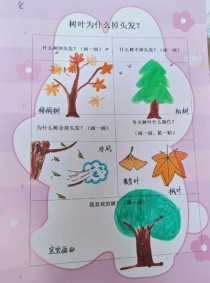 树叶为什么掉头发?
什么树掉头发?（画一画）
什么树不掉头发?（画一画）
梧桐树
松树
为什么树会掉头发?（画一画）
冬天树叶什么颜色?
（画一画、贴一贴）
冷风
银杏叶
枫叶
我喜欢的树?（画一画）